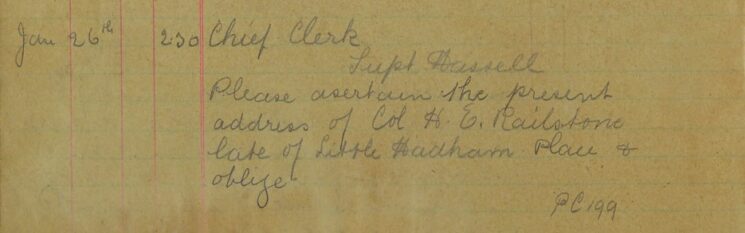 Jan 26th 2.30 Chief Clerk
Supt Hassell
Please asertain the present
address of Col H. E. Railstone
late of Little Hadham Place &
oblige
PC 199